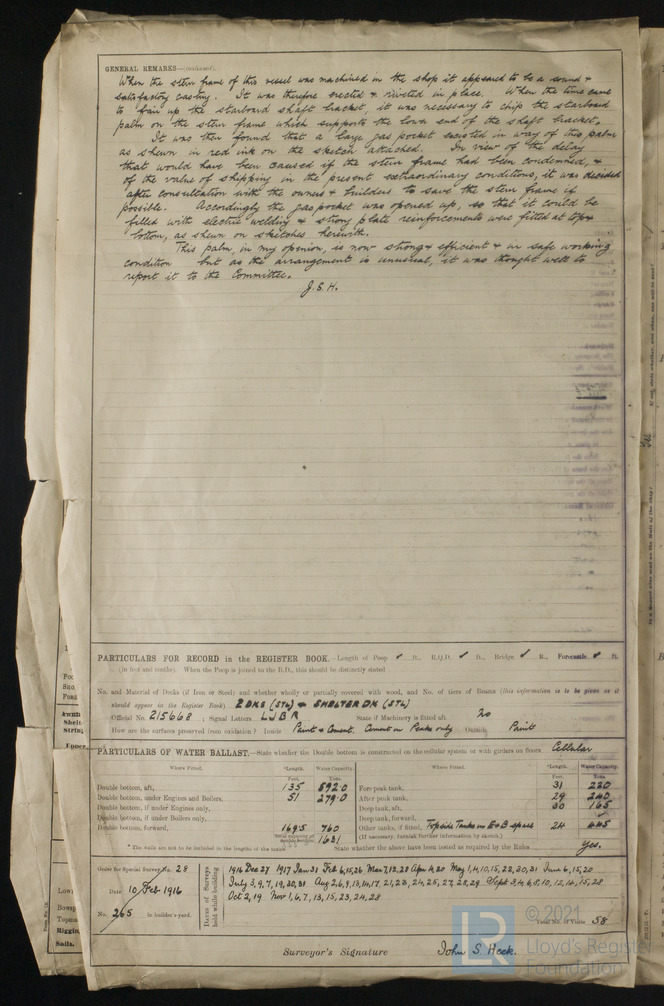 GENERAL REMARKS—(continued).
When the stern frame of this vessel was machined in the shop it appeared to be a sound &
satisfactory casting. It was therefore erected & riveted in place. When the time came
to fair up the starboard shaft bracket, it was necessary to chip the starboard
palm on the stern frame which supports the lower end of the shaft bracket.
It was then found that a large gas pocket existed in way of this palm
as shewn in red ink on the sketch attached. In view of the delay
that would have been caused if the stern frame had been condemned, &
of the value of shipping in the present extraordinary conditions, it was decided
after consultation with the owners & builders to save the stern frame if
possible. Accordingly the gas pocket was opened up, so that it could be
filled with electric welding & strong plate reinforcements were fitted at top &
bottom, as shewn on sketches herewith.
This palm, in my opinion, is now strong & efficient & in safe working
condition but as the arrangement is unusual, it was thought well to
report it to the Committee.
J.S.H.
PARTICULARS FOR RECORD in the REGISTER BOOK.—Length of Poop ft., R.Q.D. ft., Bridge ft., Forecastle ft.
(in feet and tenths). When the Poop is joined to the B.D., this should be distinctly stated
No. and Material of Decks (if Iron or Steel) and whether wholly or partially covered with wood, and No. of tiers of Beams (this information is to be given as it
should appear in the Register Book) 2 DKS (STL) & SHELTER DK (STL)
Official No. 215668 ; Signal Letters LJBR State if Machinery is fitted aft no
How are the surfaces preserved from oxidation? Inside Paint & Cement. Cement in Peaks only Outside Paint
PARTICULARS OF WATER BALLAST.—State whether the Double bottom is constructed on the cellular system or with girders on floors. Cellular
Where Fitted. *Length. Water Capacity. Where Fitted. *Length. Water Capacity.
Feet. Tons. Feet. Tons.
Double bottom, aft, 135 592.0 Fore peak tank, 31 220
Double bottom, under Engines and Boilers, 51 279.0 After peak tank, 29 240
Double bottom, if under Engines only, Deep tank, aft, 30 165
Double bottom, if under Boilers only, Deep tank, forward,
Double bottom, forward, 169.5 760 Other tanks, if fitted, Topside Tanks in E&B space 24 445
Total capacity of double bottom 1631 (If necessary, furnish further information by sketch.)
* The wells are not to be included in the lengths of the tanks State whether the above have been tested as required by the Rules yes.
Order for Special Survey No. 28
Date 10 Feb 1916
No. 265 in builder's yard.
DATES of Surveys held while building
1916 Dec 27 1917 Jan 31 Feb 6,15,26 Mar 7,13,28 Apr 4,20 May 1,4,10,15,22,30,31 June 6,15,20
July 3,9,7,19,30,31 Aug 2,6,9,13,14,17, 21,23,24,25,27,28,29 Sept 3,4,6,8,10,12,14,15,28
Oct 2,19 Nov 1,6,7,13,15,23,24,28
Total No. of Visits 58
Surveyor's Signature John S. Heck.
© 2021
Lloyd's Register
Foundation